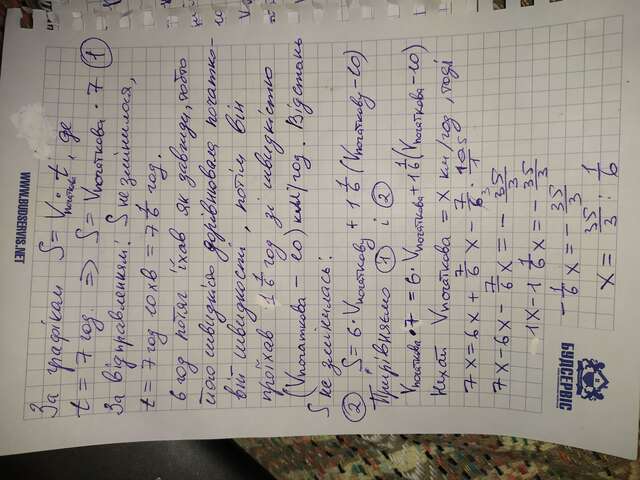 За графіком S = Vпочаткова · t, де
t = 7 год. => S = Vпочаткова · 7 (1)
За відправленням: S не змінилося,
t = 7 год 10 хв = 7 1/6 год.
6 год потяг їхав як завжди, тобто
його швидкість дорівнювала початко-
вій швидкості, потім він
проїхав 1 1/6 год зі швидкістю
(Vпочаткова - 10) км/год. Відстань
S не змінилась:
(2) S = 6 · Vпочаткову + 1 1/6 (Vпочаткову - 10)
Прирівняємо (1) і (2)
Vпочаткова · 7 = 6 · Vпочаткова + 1 1/6 (Vпочаткова - 10)
Нехай Vпочаткова = x км/год, тоді
7x = 6x + 7/6 x - 7/6 · 10/1
7x - 6x - 7/6 x = - 35/3
1x - 1 1/6 x = - 35/3
- 1/6 x = - 35/3
x = 35/3 : 1/6
WWW.BUDSERVIS.NET
БУДСЕРВІС